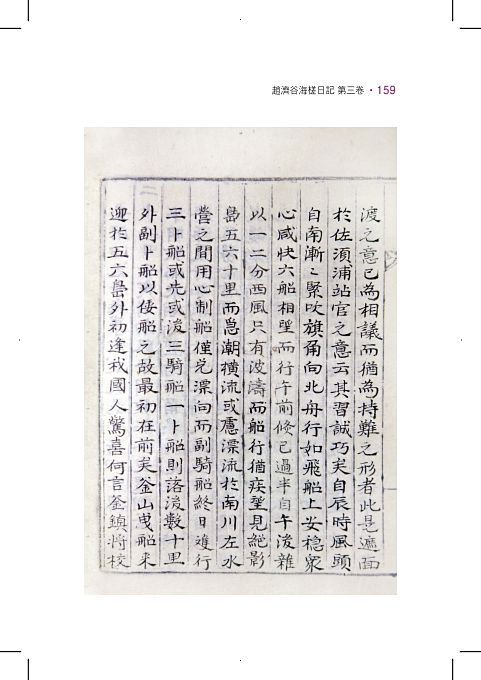 趙濟谷海槎日記 第三卷 • 159
渡之意已為相議而猶為持難之形者此是遮面
於佐須浦站官之意云其習誠巧矣自辰時風頭
自南漸〻緊吹旗角向北舟行如飛船上安穩衆
心咸快六船相望而行午前倏已過半自午後雜
以一二分西風只有波濤而船行猶疾望見絶影
島五六十里而忽潮橫流或慮漂流於南川左水
營之間用心制船僅免漂向而副騎船終日雙行
三卜船或先或後三騎船一卜船則落後數十里
外副卜船以倭船之故最初在前矣釜山曳船来
迎於五六島外初逢我國人驚喜何言釜鎮將校